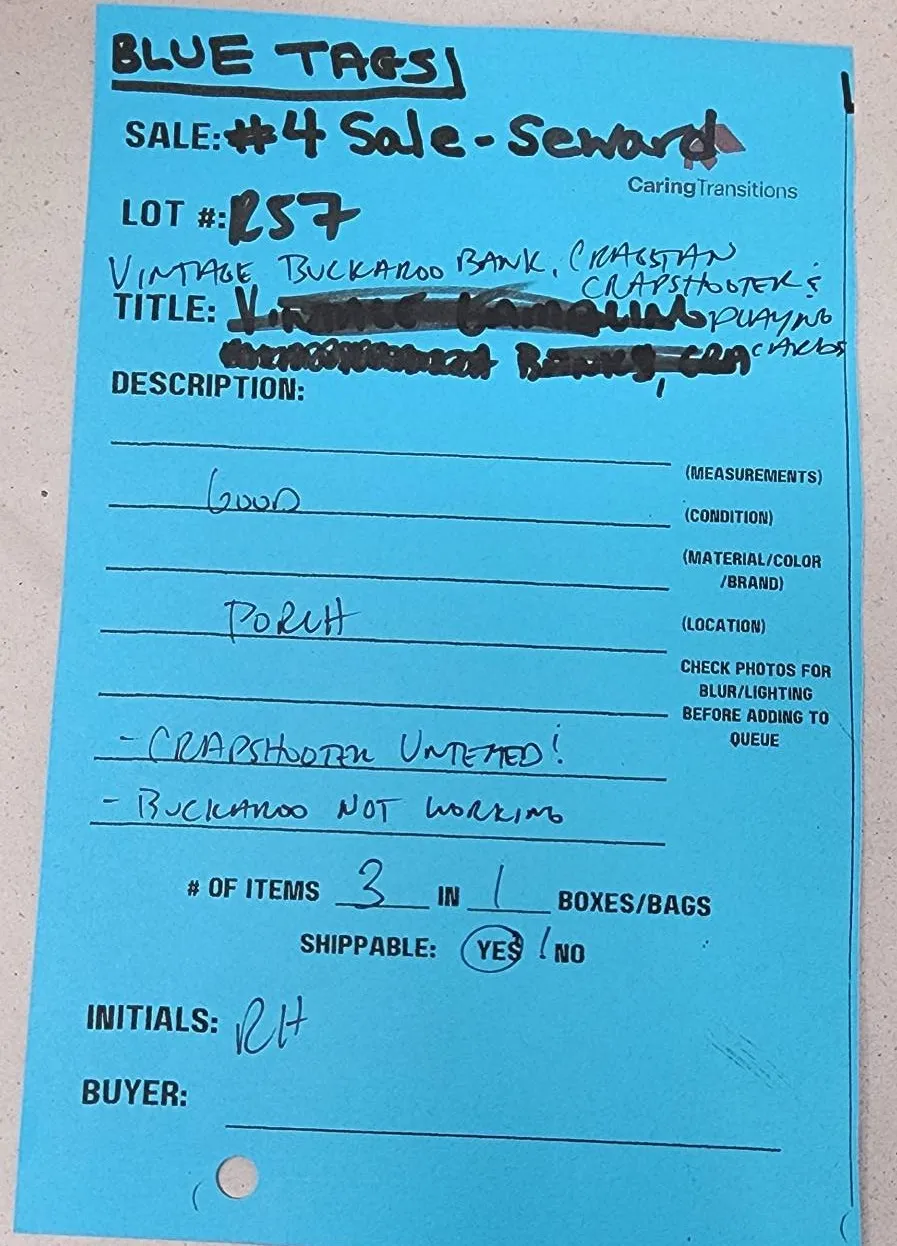 BLUE TAGS
SALE: #4 Sale - Seward
CaringTransitions
LOT #: R57
VINTAGE BUCKAROO BANK, CRAGSTAN
CRAPSHOOTER &
TITLE: PLAYING
CARDS
DESCRIPTION:
(MEASUREMENTS)
GOOD (CONDITION)
(MATERIAL/COLOR
/BRAND)
PORCH (LOCATION)
CHECK PHOTOS FOR
BLUR/LIGHTING
BEFORE ADDING TO
QUEUE
- CRAPSHOOTER UNTESTED!
- BUCKAROO NOT WORKING
# OF ITEMS 3 IN 1 BOXES/BAGS
SHIPPABLE: YES / NO
INITIALS: RH
BUYER: